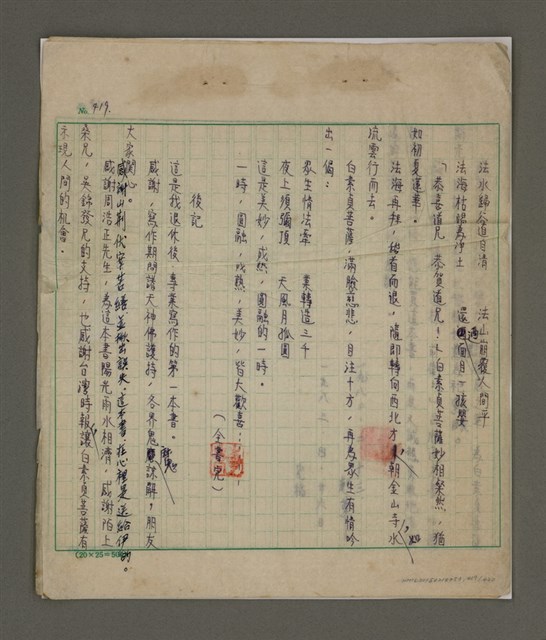 № 419.
法水歸谷道自清　法山崩裂人間平
法海枯退為淨土　還
「恭喜道兄，恭賀道兄！」白素貞菩薩妙相粲然，猶
如初夏蓮華。
法海再拜，稽首而退，隨即轉向西北方朝金山寺，如水
流雲行而去。
白素貞菩薩，滿臉慈悲，目注十方，再為眾生有情吟
出一偈：
眾生情法牽　業轉造三千
夜上須彌頂　天風月孤圓
這是美妙，成熟，圓融的一時。
一時，圓融，成熟，美妙，皆大歡喜……
（全書完）
後記
這是我退休後，專業寫作的第一本書。
感謝，寫作期間諸天神佛護持，各界鬼諒解，朋友
大家關心。
感謝山荊代宰苦缮並揪出誤失。這本書在心裡是送給伊的。
感謝周浩正先生，為這本書陽光雨水相濟，感謝陌上
桑兄，吳錦發兄的支持，也感謝台灣時報讓白素貞菩薩有
示現人間的机會。
(20×25=500)